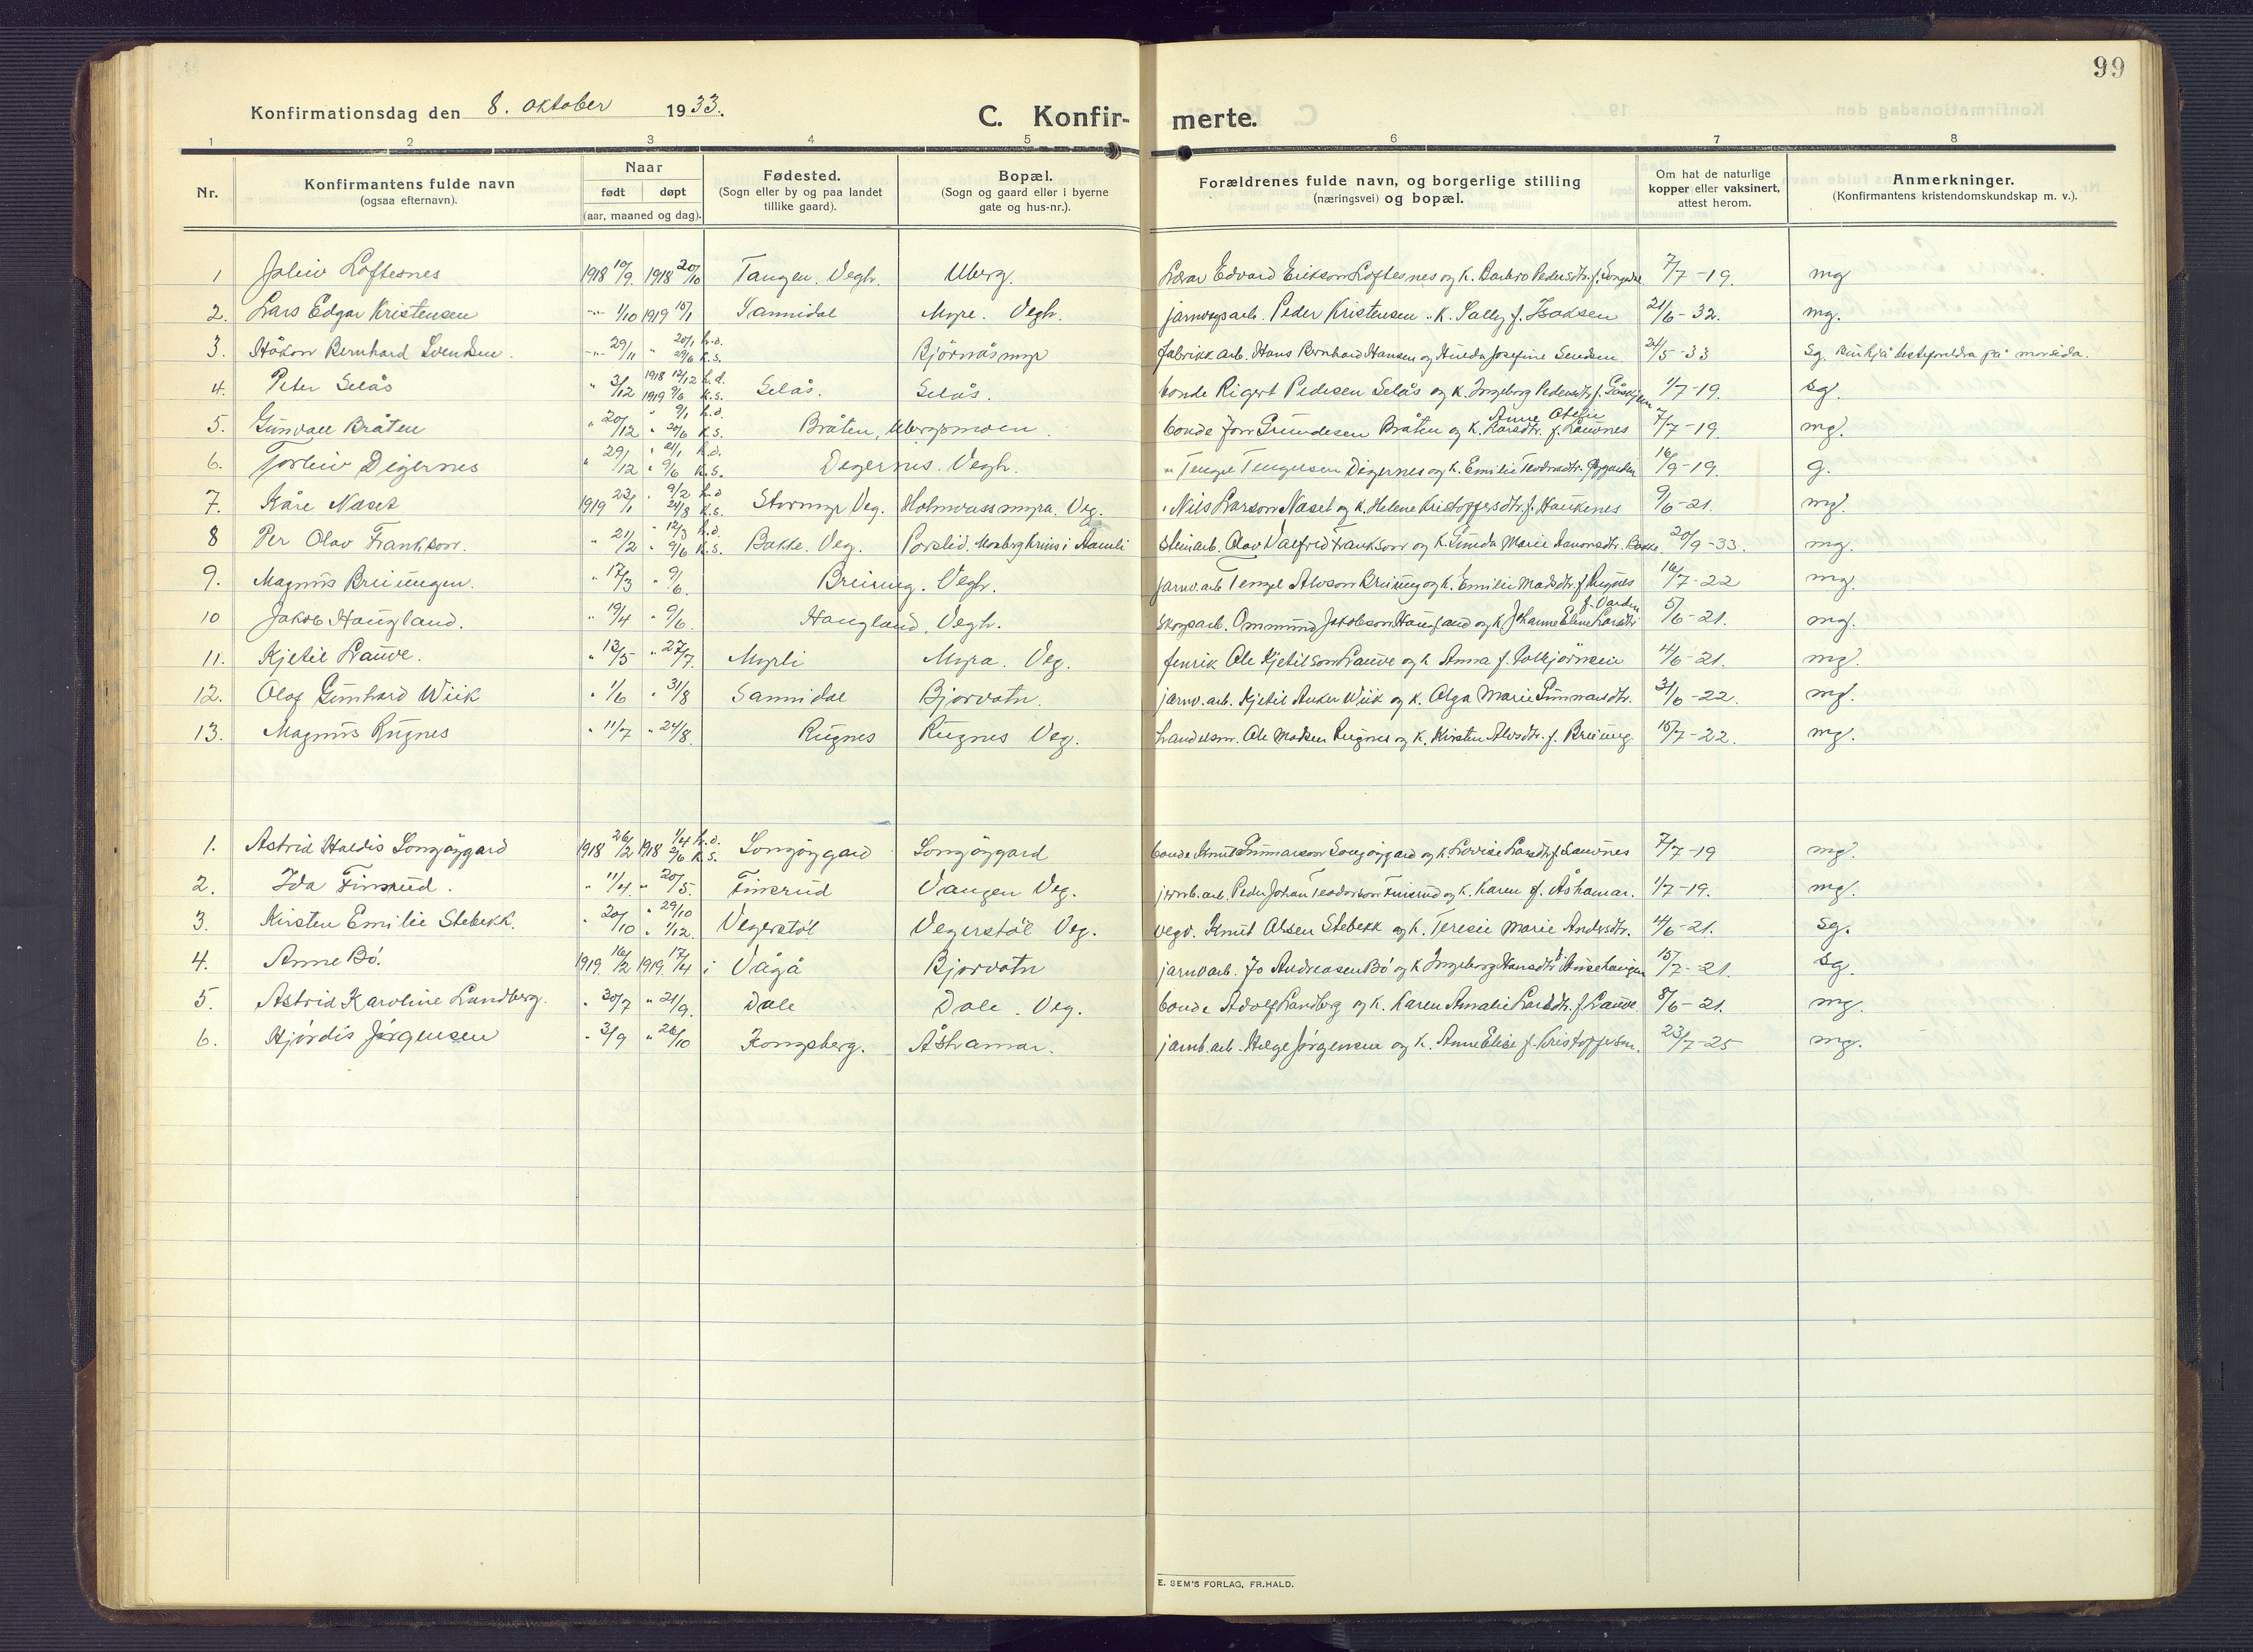 99
Konfirmationsdag den 8. oktober 1933.
C. Konfir- merte.
1 2 3 4 5 6 7 8
Nr.
Konfirmantens fulde navn
(ogsaa efternavn).
Naar
født døpt
(aar, maaned og dag).
Fødested.
(Sogn eller by og paa landet
tillike gaard).
Bopæl.
(Sogn og gaard eller i byerne
gate og hus-nr.).
Forældrenes fulde navn, og borgerlige stilling
(næringsvei) og bopæl.
Om hat de naturlige
kopper eller vaksinert,
attest herom.
Anmerkninger.
(Konfirmantens kristendomskundskap m. v.).
1 Loftesnes 1918 10/9. 1918 20/10 Tangen. Vegh. Uberg. Lærar Edvard Erikson Loftesnes og K. Barbro Pedersdtr. f. 7/7-19. mg
2. Lars Edgar Kristensen -"- 1/10 1919 15/1 Sannidal Myre. Vegh. jarnvegsarb. Peder Kristensen .. K. Sally f. Isaksen 21/6-32. mg.
3. Håkon Bernhard Svendsen. -"- 29/11 " 20/1 h.d. 29/6 K.s. Björnåsmyr fabrikk arb. Hans Bernhard Hansen og Hulda Josefine Sendsen 24/5-33 Sg. besteforeldra på morsida.
4. Peter Selås " 3/12 1918 12/12 h.d. 1919 9/6 K.s. Selås. Selås. bonde Rigert Pedersen Selås og K. Ingeborg Pedersdtr. f. 1/7-19. sg.
5. Gunvall Bråten " 20/12 " 9/1 h.d. " 20/6 K.s. Bråten, Ubergsmoen. bonde Jon Gundesen Bråten og K. Anne Larsdtr. f. Lauvnes 7/7-19. mg.
6. Torleiv Digernes " 29/12 " 21/1 h.d. " 9/6 K.s. Degernes. Vegh. " Tengel Tengelsen Digernes og K. Emilie Teodorsdtr. 16/9-19. g.
7. Kåre Naset 1919 23/1 " 9/2 h.d " 24/8 K.s. Stormyr Veg. Holmvassmyra. Veg. " Nils Larson Naset og K. Helene Kristoffersdtr. f. Haukenes 9/6-21. mg.
8 Per Olav Frankson. " 21/2 " 12/3 h.d. " 9/6 K.s. Bakke. Veg. i Aamli Steinarb. Olav Valfred Frankson og K. Gunda Marie Aanonsdtr. Bakke 20/9-33. mg.
9. Magnus Breiungen. " 17/3 " 9/6. Breiung. Vegh. jarnv.arb Tengel Alvson Breiung og K. Emilie Madsdtr. f. Rugnes 16/7-22 mg
10 Jakob Haugland. " 19/4 " 9/6. Haugland, Vegh. skogsarb. Ommund Jakobson Haugland og K. Johanne Eline Larsdtr f. Varden 5/6-21. mg.
11. Kjetil Lauve. " 13/5 " 27/7. Myrli Myra. Veg. fenrik Ole Kjetilson Lauve og K Anna f. Solbjørnsen 4/6-21. mg.
12. Olaf Gunhard Wiik " 1/6 " 31/8 Sannidal Bjorvatn. jarnv.arb. Kjetil Anker Wiik og K. Olga Marie Gunnarsdtr. 3/6-22. mg.
13. Magnus Rugnes " 11/7 " 24/8. Rugnes Rugnes Veg. handelsm. Ole Madsen Rugnes og K. Kirsten Alvsdtr. f. Breiung 15/7-22. mg.
1. Astrid Haldis Songöygard 1918 26/2 1918 1/4 h.d. 2/6 K.s. Songöygard Songöygard bonde Knut Gunnarson Songöygard og K. Lovise Larsdtr. f. Lauvnes 7/7-19 mg.
2. Ida Finsrud. " 11/4 " 20/5. Finsrud Vangen Veg. jernb.arb. Peder Johan Teodorson Finsrud og K. Karen f. Åshamar. 1/7-19. mg.
3. Kirsten Emilie Stebekk. " 20/10 " 29/10 " 1/12. Vegerstöl Vegerstöl Veg. vegv. Knut Olsen Stebekk og K. Teresie Marie Andersdtr. 4/6-21. Sg.
4. Anne Bö. 1919 16/2 1919 17/4 i Vågå Bjorvatn jarnv.arb. Jo Andreasen Bö og K Ingeborg Hansdtr. f. 15/7-21. sg.
5. Astrid Karoline Lundberg. " 30/7 " 21/9. Dale Dale. Veg. bonde Adolf Lundberg og K. Karen Amalie Larsdtr. f. Lauve. 8/6-21. mg.
6. Hjördis Jørgensen " 3/9 " 26/10 Kongsberg. Åshamar. jarnb.arb. Helge Jørgensen og K. Anne Elise f. Kristoffersen. 23/7-25 mg.
E. SEM'S FORLAG, FR.HALD.